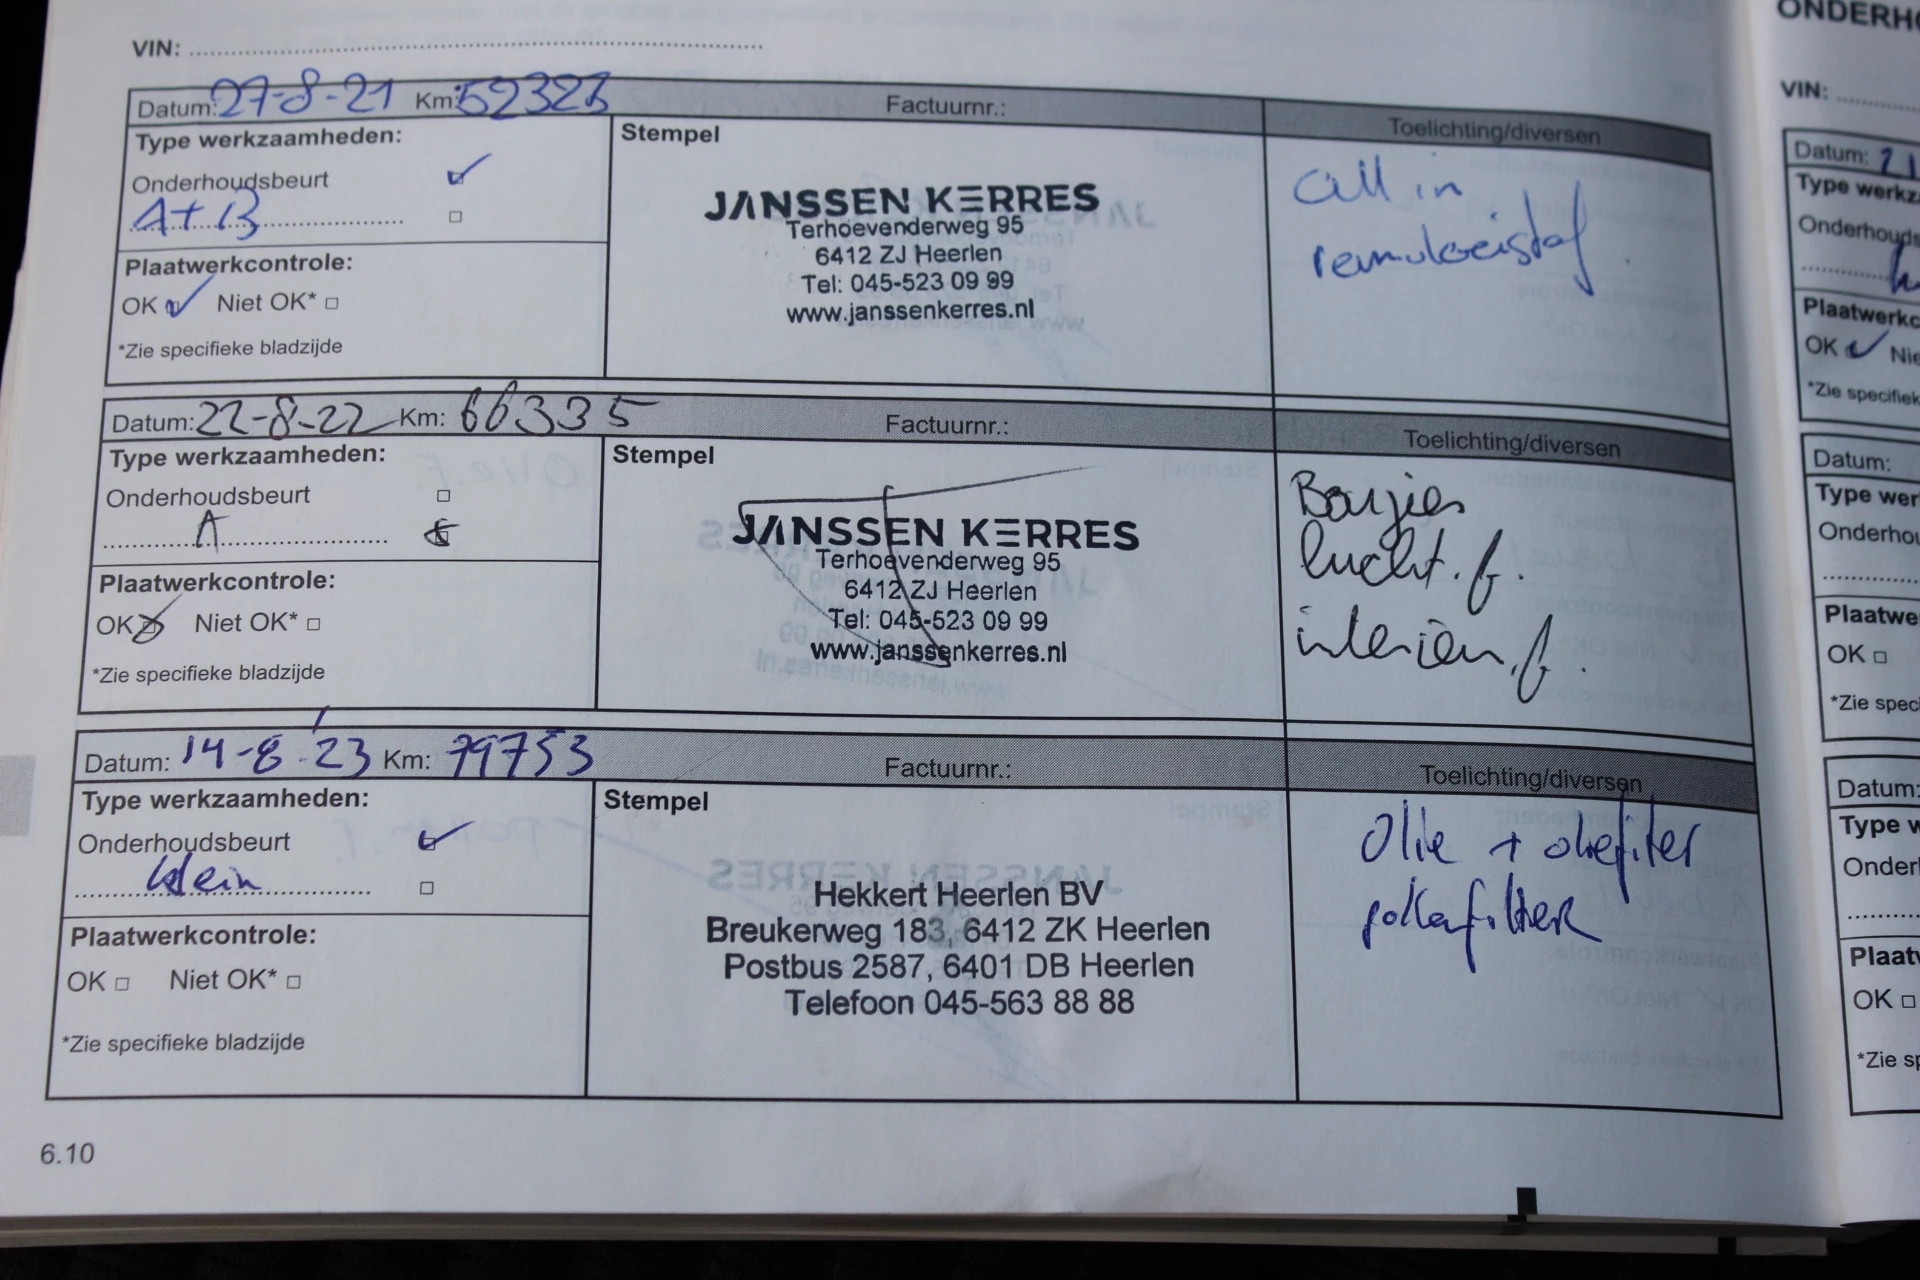 VIN:
Datum: 27-8-21 Km: 52323 Factuurnr.: Toelichting/diversen
Type werkzaamheden:
Stempel
Onderhoudsbeurt
A+B
Plaatwerkcontrole:
OK Niet OK*
*Zie specifieke bladzijde
JANSSEN KERRES
Terhoevenderweg 95
6412 ZJ Heerlen
Tel: 045-523 09 99
www.janssenkerres.nl
all in
remvloeistof
Datum: 22-8-22 Km: 66335 Factuurnr.: Toelichting/diversen
Type werkzaamheden:
Stempel
Onderhoudsbeurt
A
Plaatwerkcontrole:
OK Niet OK*
*Zie specifieke bladzijde
JANSSEN KERRES
Terhoevenderweg 95
6412 ZJ Heerlen
Tel: 045-523 09 99
www.janssenkerres.nl
Bougies
lucht.f.
interieur.f.
Datum: 14-8-'23 Km: 79753 Factuurnr.: Toelichting/diversen
Type werkzaamheden:
Stempel
Onderhoudsbeurt
klein
Plaatwerkcontrole:
OK Niet OK*
*Zie specifieke bladzijde
Hekkert Heerlen BV
Breukerweg 183, 6412 ZK Heerlen
Postbus 2587, 6401 DB Heerlen
Telefoon 045-563 88 88
Olie + oliefilter
pollenfilter
6.10
VIN:
Datum: 21
OK
Datum:
OK
Datum:
OK